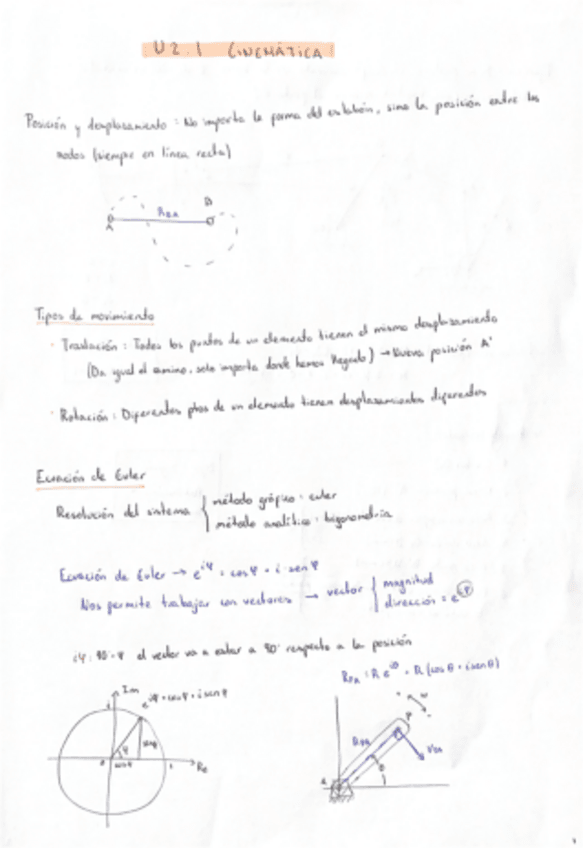 U2.1 CINEMÁTICA
Posición y desplazamiento: No importa la forma del eslabón, sino la posición entre los
nodos (siempre en línea recta)
B
RBA
A
Tipos de movimiento
· Traslación: Todos los puntos de un elemento tienen el mismo desplazamiento
(Da igual el camino, solo importa donde hemos llegado) → Nueva posición A'
· Rotación: Diferentes ptos de un elemento tienen desplazamientos diferentes
Ecuación de Euler
Resolución del sistema { método gráfico · euler
método analítico · trigonometría
Ecuación de Euler → e^iφ = cosφ + i·senφ
Nos permite trabajar con vectores → vector { magnitud
dirección = e^iφ
iφ: 90+φ el vector va a estar a 90° respecto a la posición
RPA: R e^iθ = R (cosθ + i senθ)
Im
e^iφ = cosφ + i senφ
φ
senφ
cosφ
Re
RPA
P
VPA
θ
A